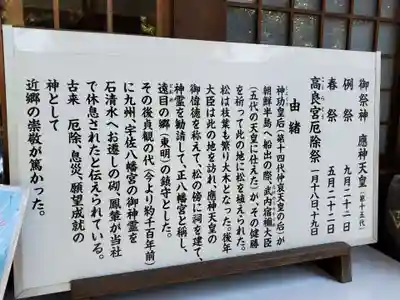 御祭神　應神天皇（第十五代）
例祭　九月二十二日
春祭　五月二十二日
高良宮厄除祭　一月十八日、十九日
由緒
神功皇后（第十四代仲哀天皇の后）が
朝鮮半島へ船出の際、武内宿禰大臣
（五代の天皇に仕えた）が、その健勝
を祈って此の地に松を植えられた。
松は枝葉も繁り大木となった。後年
大臣は此の地を訪れ、應神天皇の
御偉徳を称えて、松の傍に祠を建て、
神霊を勧請して、正八幡宮と称し、
遠目の郷（東明）の鎮守とした。
その後貞観の代（今より約千百年前）
に九州、宇佐八幡宮の御神霊を
石清水へお遷しの砌、鳳輦が当社
で休息されたと伝えられている。
古来　厄除、息災、願望成就の
神として
近郷の崇敬が篤かった。